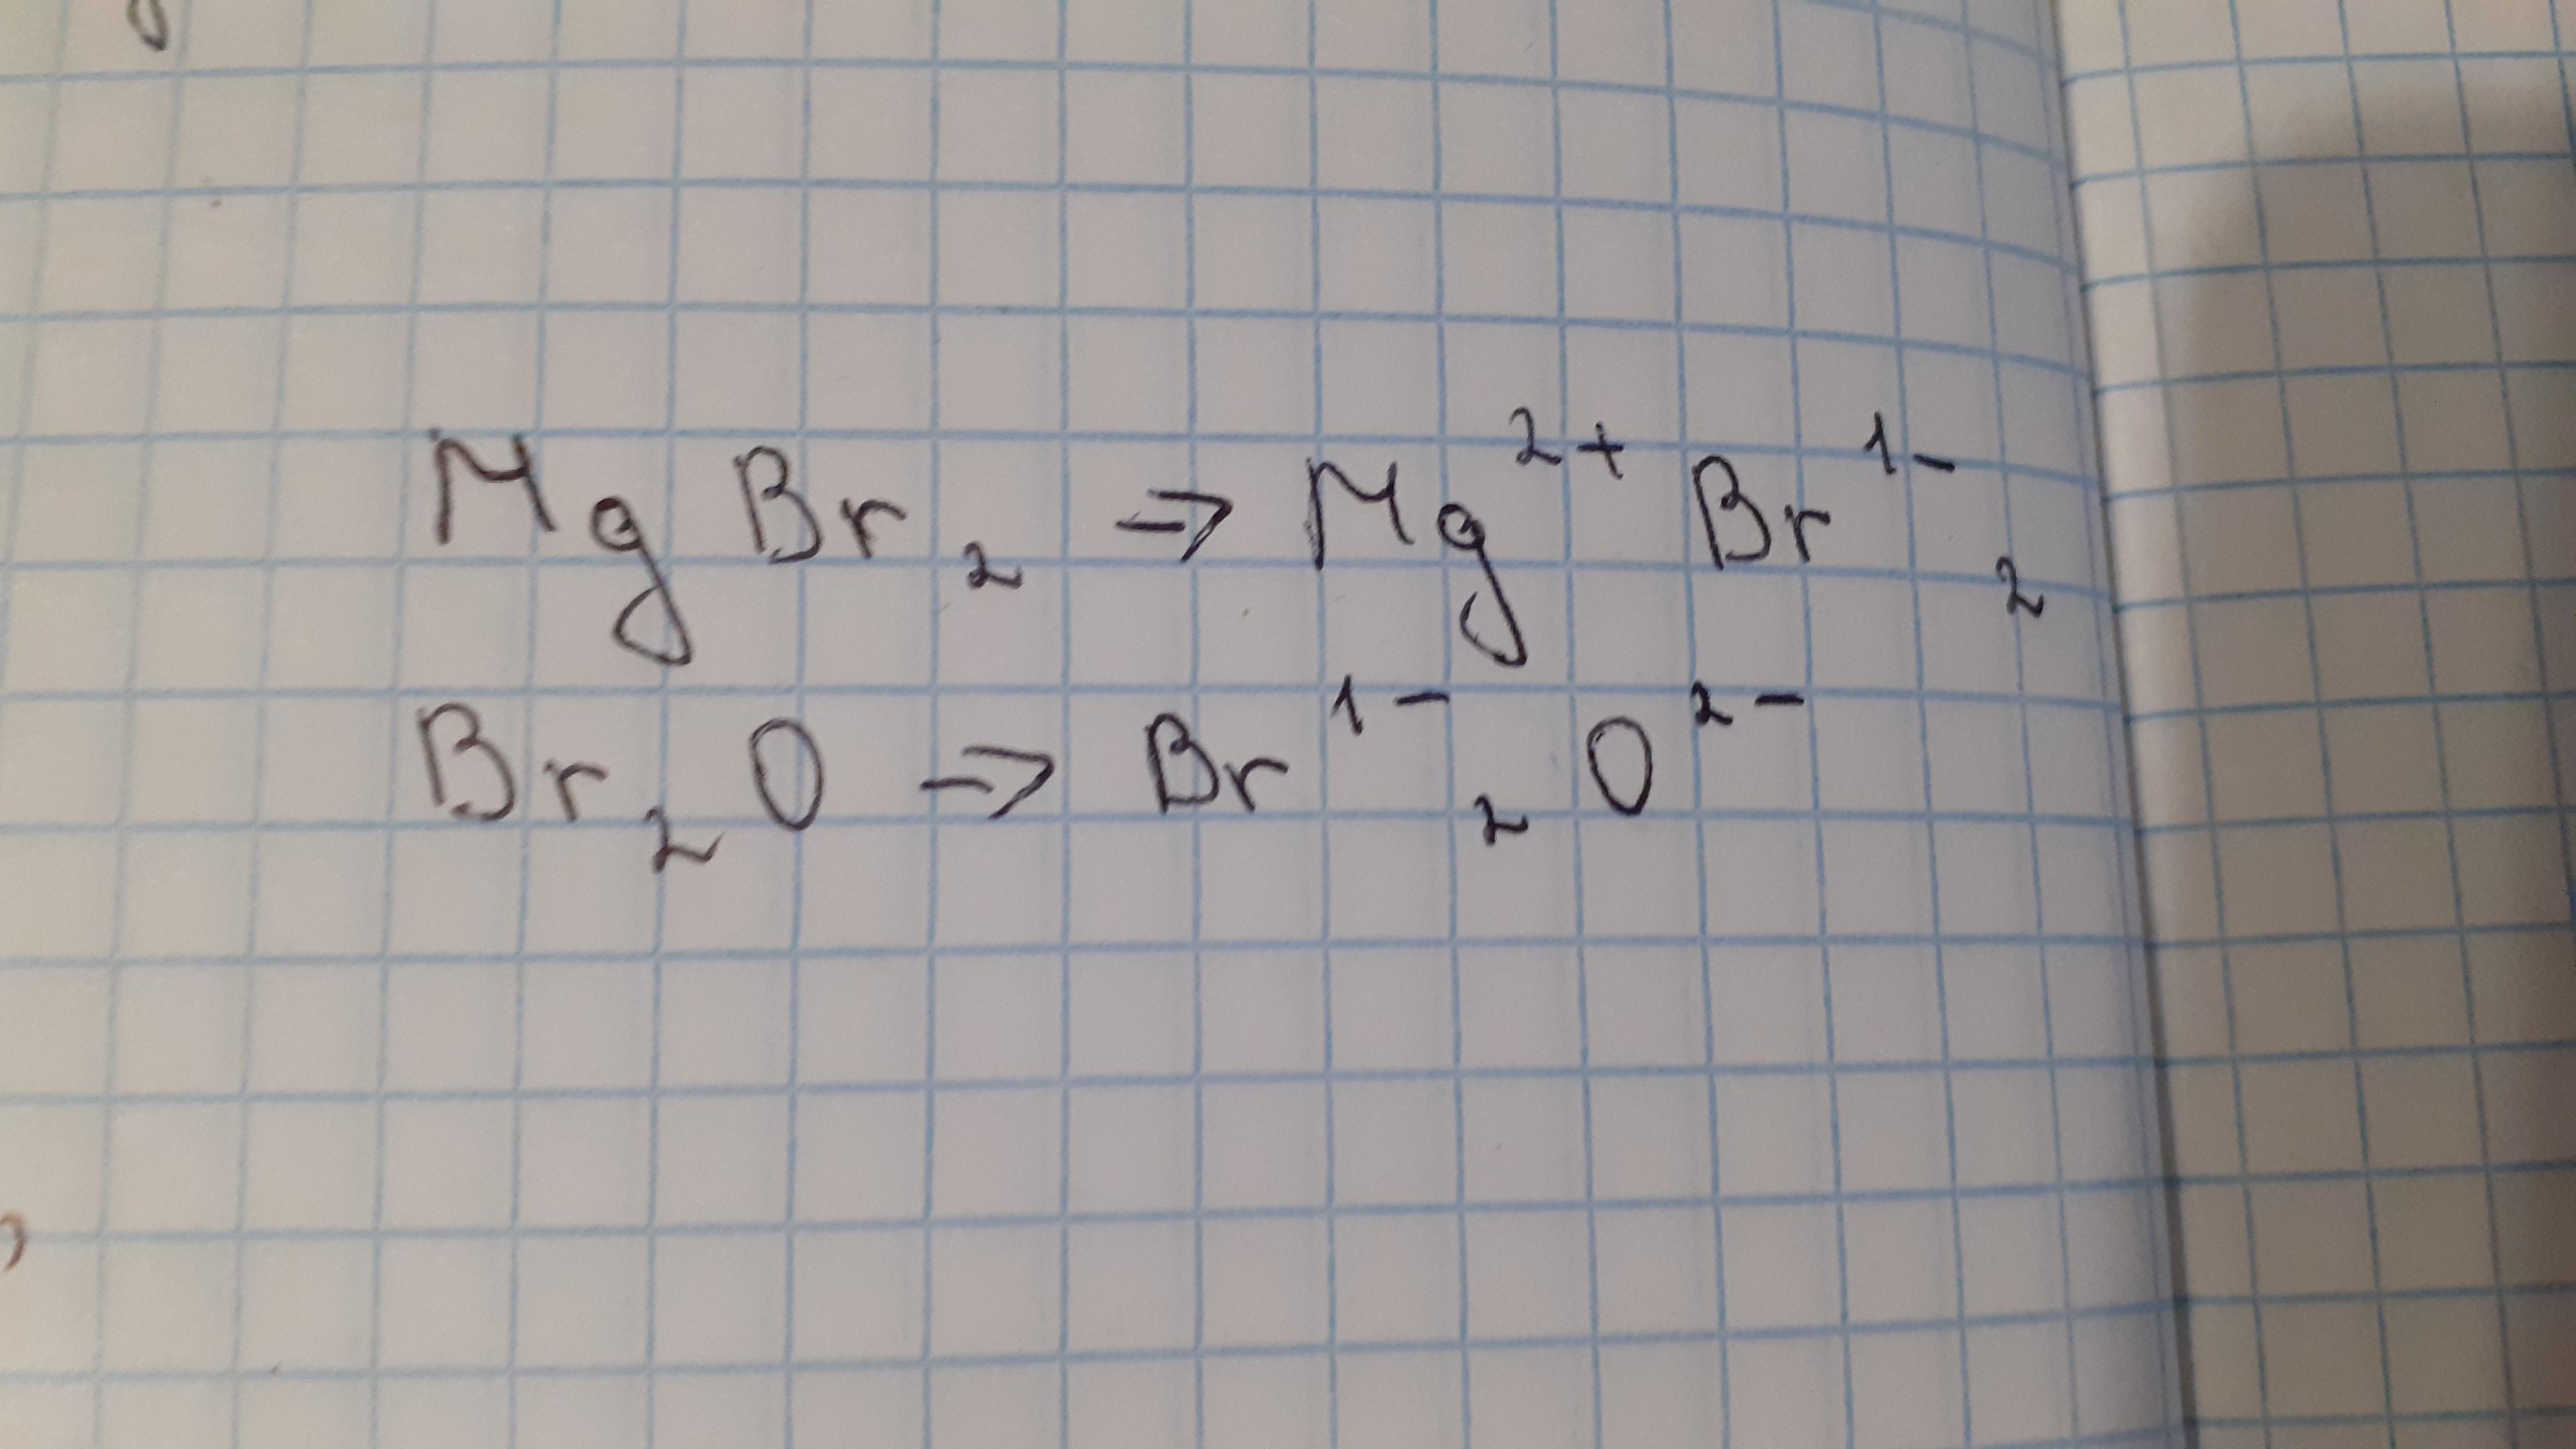 MgBr₂ ⇒ Mg²⁺Br¹⁻₂
Br₂O ⇒ Br¹⁻₂O²⁻